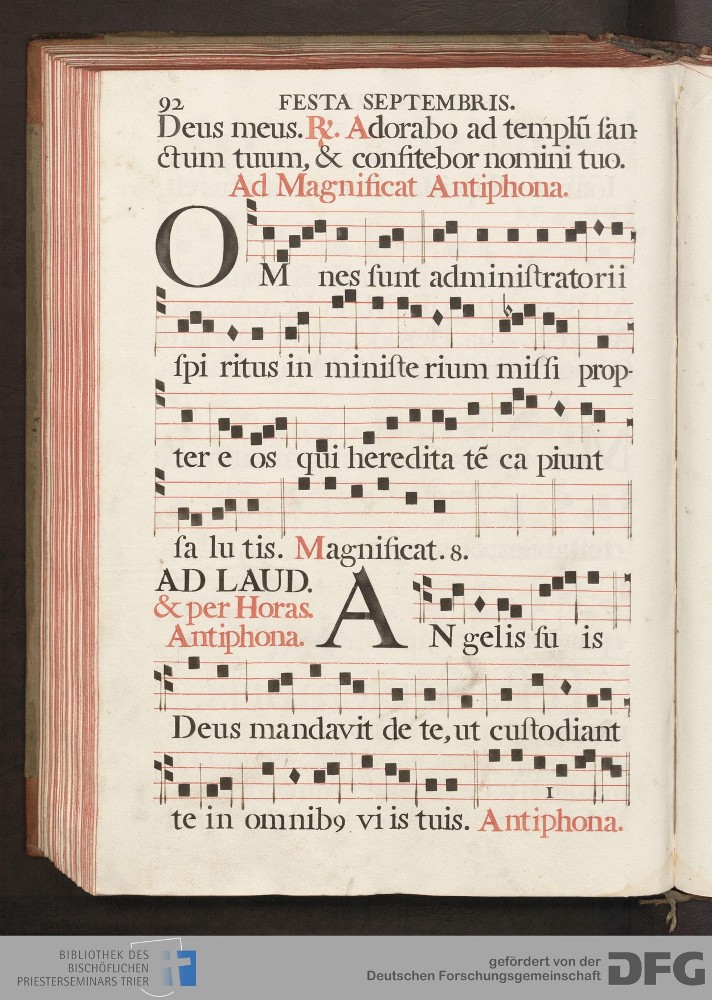 92 FESTA SEPTEMBRIS.
Deus meus. ℟. Adorabo ad templū ſan-
ctum tuum, & confitebor nomini tuo.
Ad Magnificat Antiphona.
OM nes ſunt adminiſtratorii
ſpi ritus in miniſte rium miſſi prop-
ter e os qui heredita tē ca piunt
ſa lu tis. Magnificat. 8.
AD LAUD.
& per Horas.
Antiphona.
AN gelis ſu is
Deus mandavit de te, ut cuſtodiant
1
te in omnib9 vi is tuis. Antiphona.
BIBLIOTHEK DES
BISCHÖFLICHEN
PRIESTERSEMINARS TRIER
gefördert von der
Deutschen Forschungsgemeinschaft
DFG